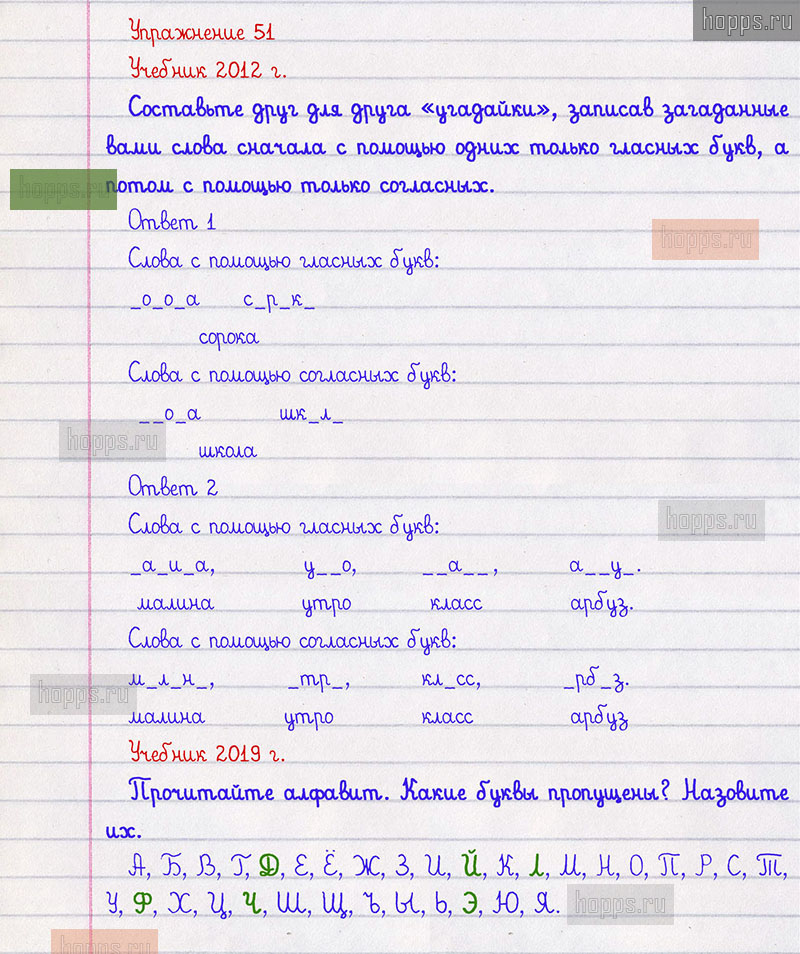 hopps.ru
Упражнение 51
Учебник 2012 г.
Составьте друг для друга «угадайки», записав загаданные
вами слова сначала с помощью одних только гласных букв, а
hopps.ru
потом с помощью только согласных.
Ответ 1
hopps.ru
Слова с помощью гласных букв:
_о_о_а с_р_к_
сорока
Слова с помощью согласных букв:
__о_а шк_л_
hopps.ru
школа
Ответ 2
hopps.ru
Слова с помощью гласных букв:
_а_и_а, у__о, __а__, а__у_.
малина утро класс арбуз.
Слова с помощью согласных букв:
м_л_н_, _тр_, кл_сс, _рб_з.
hopps.ru
малина утро класс арбуз
Учебник 2019 г.
Прочитайте алфавит. Какие буквы пропущены? Назовите
их.
А, Б, В, Г, Д, Е, Ё, Ж, З, И, Й, К, Л, М, Н, О, П, Р, С, Т,
У, Ф, Х, Ц, Ч, Ш, Щ, Ъ, Ы, Ь, Э, Ю, Я.
hopps.ru
hopps.ru